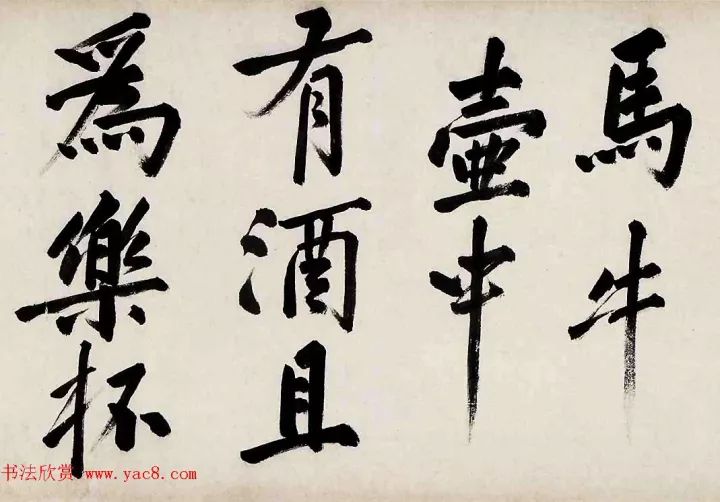 馬牛
壺中
有酒且
爲樂杯
书法欣赏 www.yac8.com